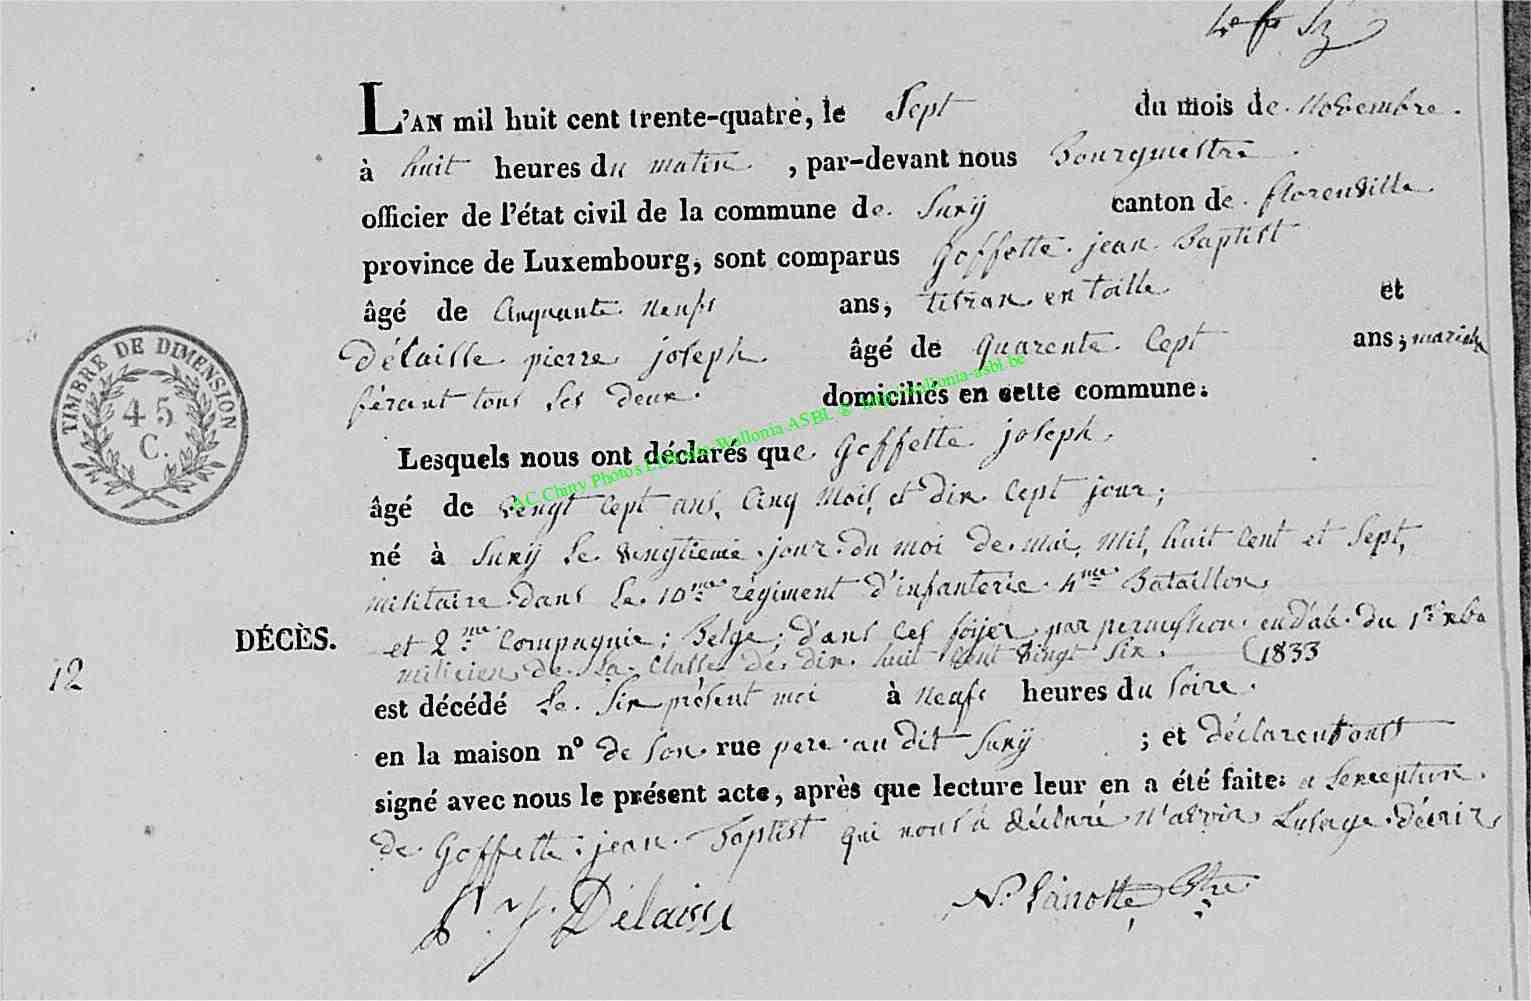 L'AN mil huit cent trente-quatre, le Sept du mois de Novembre.
à huit heures du matin, par-devant nous Bourgmestre
officier de l'état civil de la commune de Suxÿ canton de florenville
province de Luxembourg, sont comparus Goffette jean Baptist
âgé de Cinquante neufs ans, tisran en toille et
Délaisse pierre joseph âgé de quarente Sept ans; marichal
férant tous les deux domiciliés en cette commune.
Lesquels nous ont déclarés que Goffette joseph
âgé de Vengt Sept ans, Cinq mois, et dix Sept jour;
né à Suxÿ Le vingtieme jour du moi de mai, mil, huit Cent et Sept,
militaire dans Le 10me régiment d'infanterie 4me Bataillon
et 2me Compagnie; Belge; dans Ces foÿer par permission en date du 1er xbre
milicien de la Classe de dix huit Cent Vingt Six. (1833
est décédé Le Six présent moi à neufs heures du Soire.
en la maison nº de Son rue pere au dit Suxÿ ; et déclarent ont
signé avec nous le présent acte, après que lecture leur en a été faite: a Lexception
de Goffette jean Baptist qui nous a déclaré n'avoir Lusage décrir
P. J. Délaisse
N. Lanotte Btre
DÉCÈS.
12
TIMBRE DE DIMENSION
45
C.
AC Chiny Photos
Wallonia ASBL @ http://wallonia-asbl.be